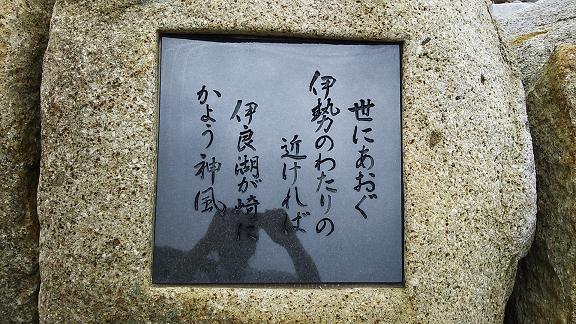 世にあおぐ
伊勢のわたりの
近ければ
伊良湖が崎に
かよう神風